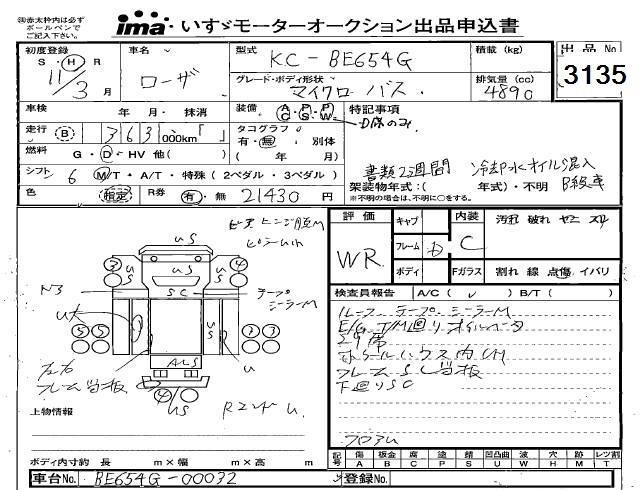 ㊟赤太枠内は必ず
ボールペンで
ご記入下さい。
ima いすゞモーターオークション出品申込書
初度登録 車名 型式 KC-BE654G 積載 (kg) 出品No
S・H・R 11/3 月 ローザ グレード・ボディ形状 マイクロバス 排気量 (cc) 4890 3135
車検 年 月・抹消 装備 AC PS PW D席のみ 特記事項
走行 B 363,000km「 」 タコグラフ 有・無 別体
燃料 G・D・HV 他( ) ( 年 月) 書類2週間 冷却水オイル混入
シフト 6 M/T・A/T・特殊 (2ペダル・3ペダル) 架装物年式:( 年式)・不明 B級車
※不明の場合は、不明に○をする。
色 指定 R券 有・無 21430 円
評価 キャブ 内装 汚れ 破れ ヤニ スリ
WR フレーム D C
ボディ Fガラス 割れ 線 点傷 イバリ
US
テープシーラーM
SC
ALS
フレーム当板
Rエンド U
検査員報告 A/C( レ ) B/T( )
ルーフ テープシーラーM
E/G T/M回りオイルニータ
29席
ホイールハウス内CM
フレームSC当板
下回りSC
上物情報
ボディ内寸約 長 m×幅 m×高 m
記号 傷 A 板金 B 腐 C 塗 P 錆 S 凹凸曲 U 波 W 穴 H 跡 M レツ割 T
車台No. BE654G-00032 登録No.